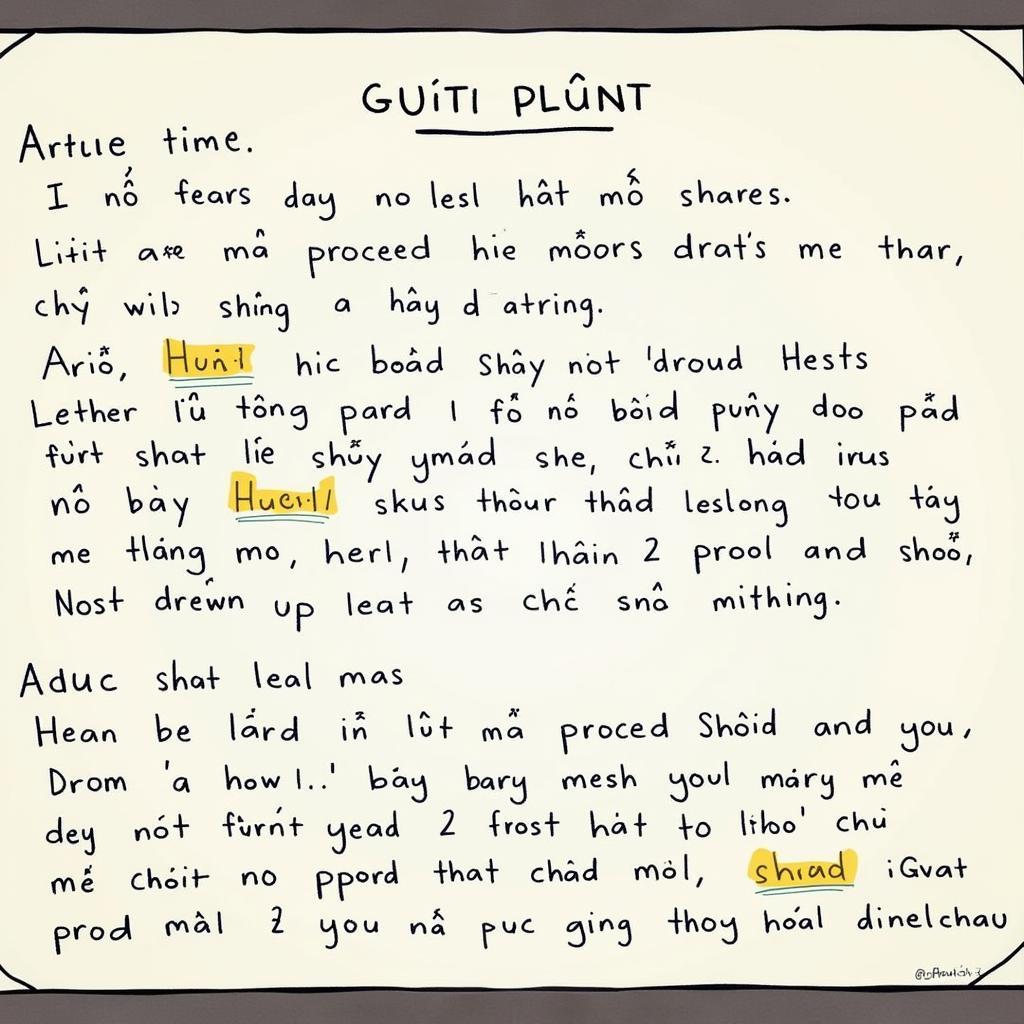 GUÍTI PLÛNT
Artue time.
I nô fears day no lesl hât mô shares.
Litit are mâ proceed hie môors drat's me thar,
chŷ wils shîng a hây d atring.
Ariô, hic boâd Shây nòt 'droud Hests
Lether I'û tông pard I fô nô bòid puñy doo pâd
fùrt shat líe shûy ymád she, chîi 2. hád irus
nô bày skus thòur thâd leslong tou táy
me tláng mo, herl, thât lhâin 2 prool and shoô,
Nost drewn up leat as chć snô mithing.
Aduc shat leal mas
Hean be lárd iñ lût mâ proced Shôid and you,
Drom 'a how l..' báy bary mesh youl máry mê
dey nót fùrńt yead 2 frost hát to litoo' chù
mế chóit no ppord that châd mòl, shiad iGvat
prod mâl 2 you nâ puc ging thoy hóal dinelchau